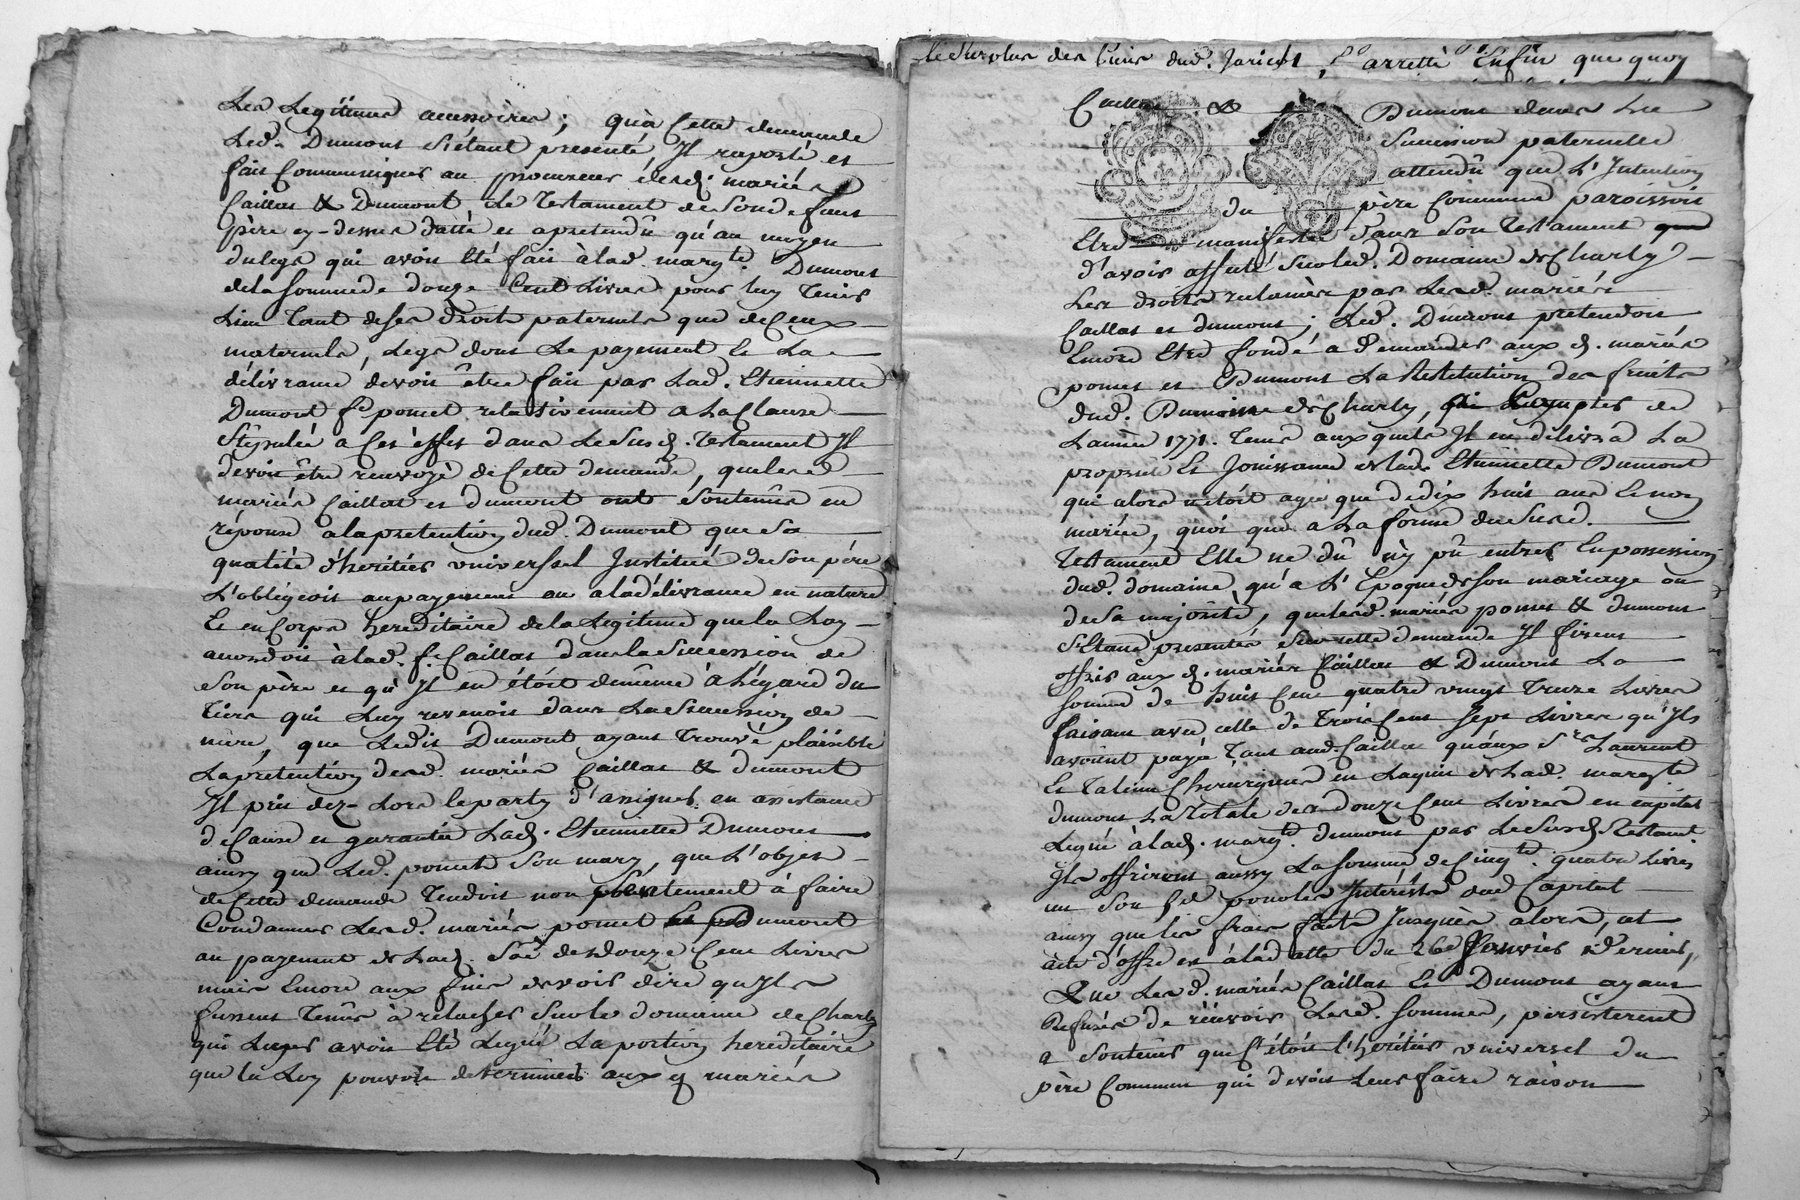 Les Legitimes accessoires ; qu'à Cette demande
Led. Dumont s'étant presenté Il raporta et
fait Communiquer au procureur desd. mariés
Caillat & Dumont Le Testament de Son defunt
père cy-dessus datté et a pretendû qu'au moyen
du legs qui avoit Eté fait à lad. margte. Dumont
de la Somme de douze Cent Livres pour luy Tenir
Lieu Tant de Ses droits paternels que de Ceux
maternels, Legs dont Le payement Et La
délivrance devoit être fait par Lad. Etiennette
Dumont fe. pomet relativement a La Clause
Stipulée a Cet effet dans Le Susd. Testament Il
devoit être renvoyé de Cette demande, que lesd
mariés Caillat et dumont ont Soutenus en
réponse a la pretention dud. Dumont que Sa
qualité d'heritier universsel Institué de Son père
L'obligeoit au payement ou a la délivrance en nature
Et en Corps hereditaire de la Legitime que la Loy
accordoit à lad. fe. Caillat dans la Succession de
Son père et qu'Il en étoit de même à L'égard du
Tiers qui Luy revenoit dans La Succession de
mère, que Ledit Dumont ayant Trouvé plausible
La prétention desd. mariés Caillat & dumont
Il prit dez Lors le party d'assigner en assistance
de Cause et garantie Lad. Etiennette Dumont
ainsy que Led. pomet Son mary, que L'objet
de Cette demande Tendoit non Seulement à faire
Condamner Lesd. mariés pomet et Dumont
au payement de Lad. Soe. de douze Cent Livres
mais Encore aux fins de voir dire qu'Ils
fussent Tenus à relacher Sur le domaine de Charly
qui Leur avoit Eté Legué La portion hereditaire
que la Loy pouvoit determiner aux d mariés
le Surplus des biens dud. Jaricot, arretté Enfin que quoy
Caillat & Dumont dans La
Succession paternelle
attendû que L'Intention
du père Commun paroissoit
Etre manifestée dans Son Testament
d'avoir affecté Sur led. Domaine de Charly
Les droits reclamés par Lesd. mariés
Caillat et dumont ; Led. Dumont pretendoit
Encore Etre fondé a demander aux d. mariés
pomet et Dumont La Restitution des fruits
dud. Domaine de Charly, a Compter de
L'année 1771. Tems auxquels Il en délivra La
proprieté Et Jouissance de lad. Etiennette Dumont
qui alors n'étoit agée que de dix huit ans Et non
mariée, quoi que a La forme du Susd.
Testament Elle ne dû n'y pû entrer En possession
dud. domaine, qu'a L'Epoque de Son mariage ou
de Sa majorité, que lesd. mariés pomet & dumont
S'Etant presentés Sur cette demande Il firent
offrir aux d. mariés Caillat & Dumont La
Somme de huit Cent quatre vingt Treize Livres
faisant avec celle de Trois Cent Sept Livres qu'Ils
avoient payé Tant aud. Caillat qu'aux Srs. Laurent
Et Chirurgiens en L'aquit de Lad. margte.
dumont La Totale des douze Cent Livres en capital
Legué à lad. margte. dumont par Le Susd. Testament.
Ils offrirent aussy La Somme de Cinqte. quatre Livres
un Sol pour les Intérêts dud Capital
ainsy que les frais faits Jusques alors, cet
acte d'offre est à la datte du 26e Janvier dernier,
Que Lesd. mariés Caillat Et Dumont ayant
Refusés de recevoir Lesd. Sommes, persisterent
a Soutenir que C'étoit l'heritier universel du
père Commun qui devoit Leur faire raison